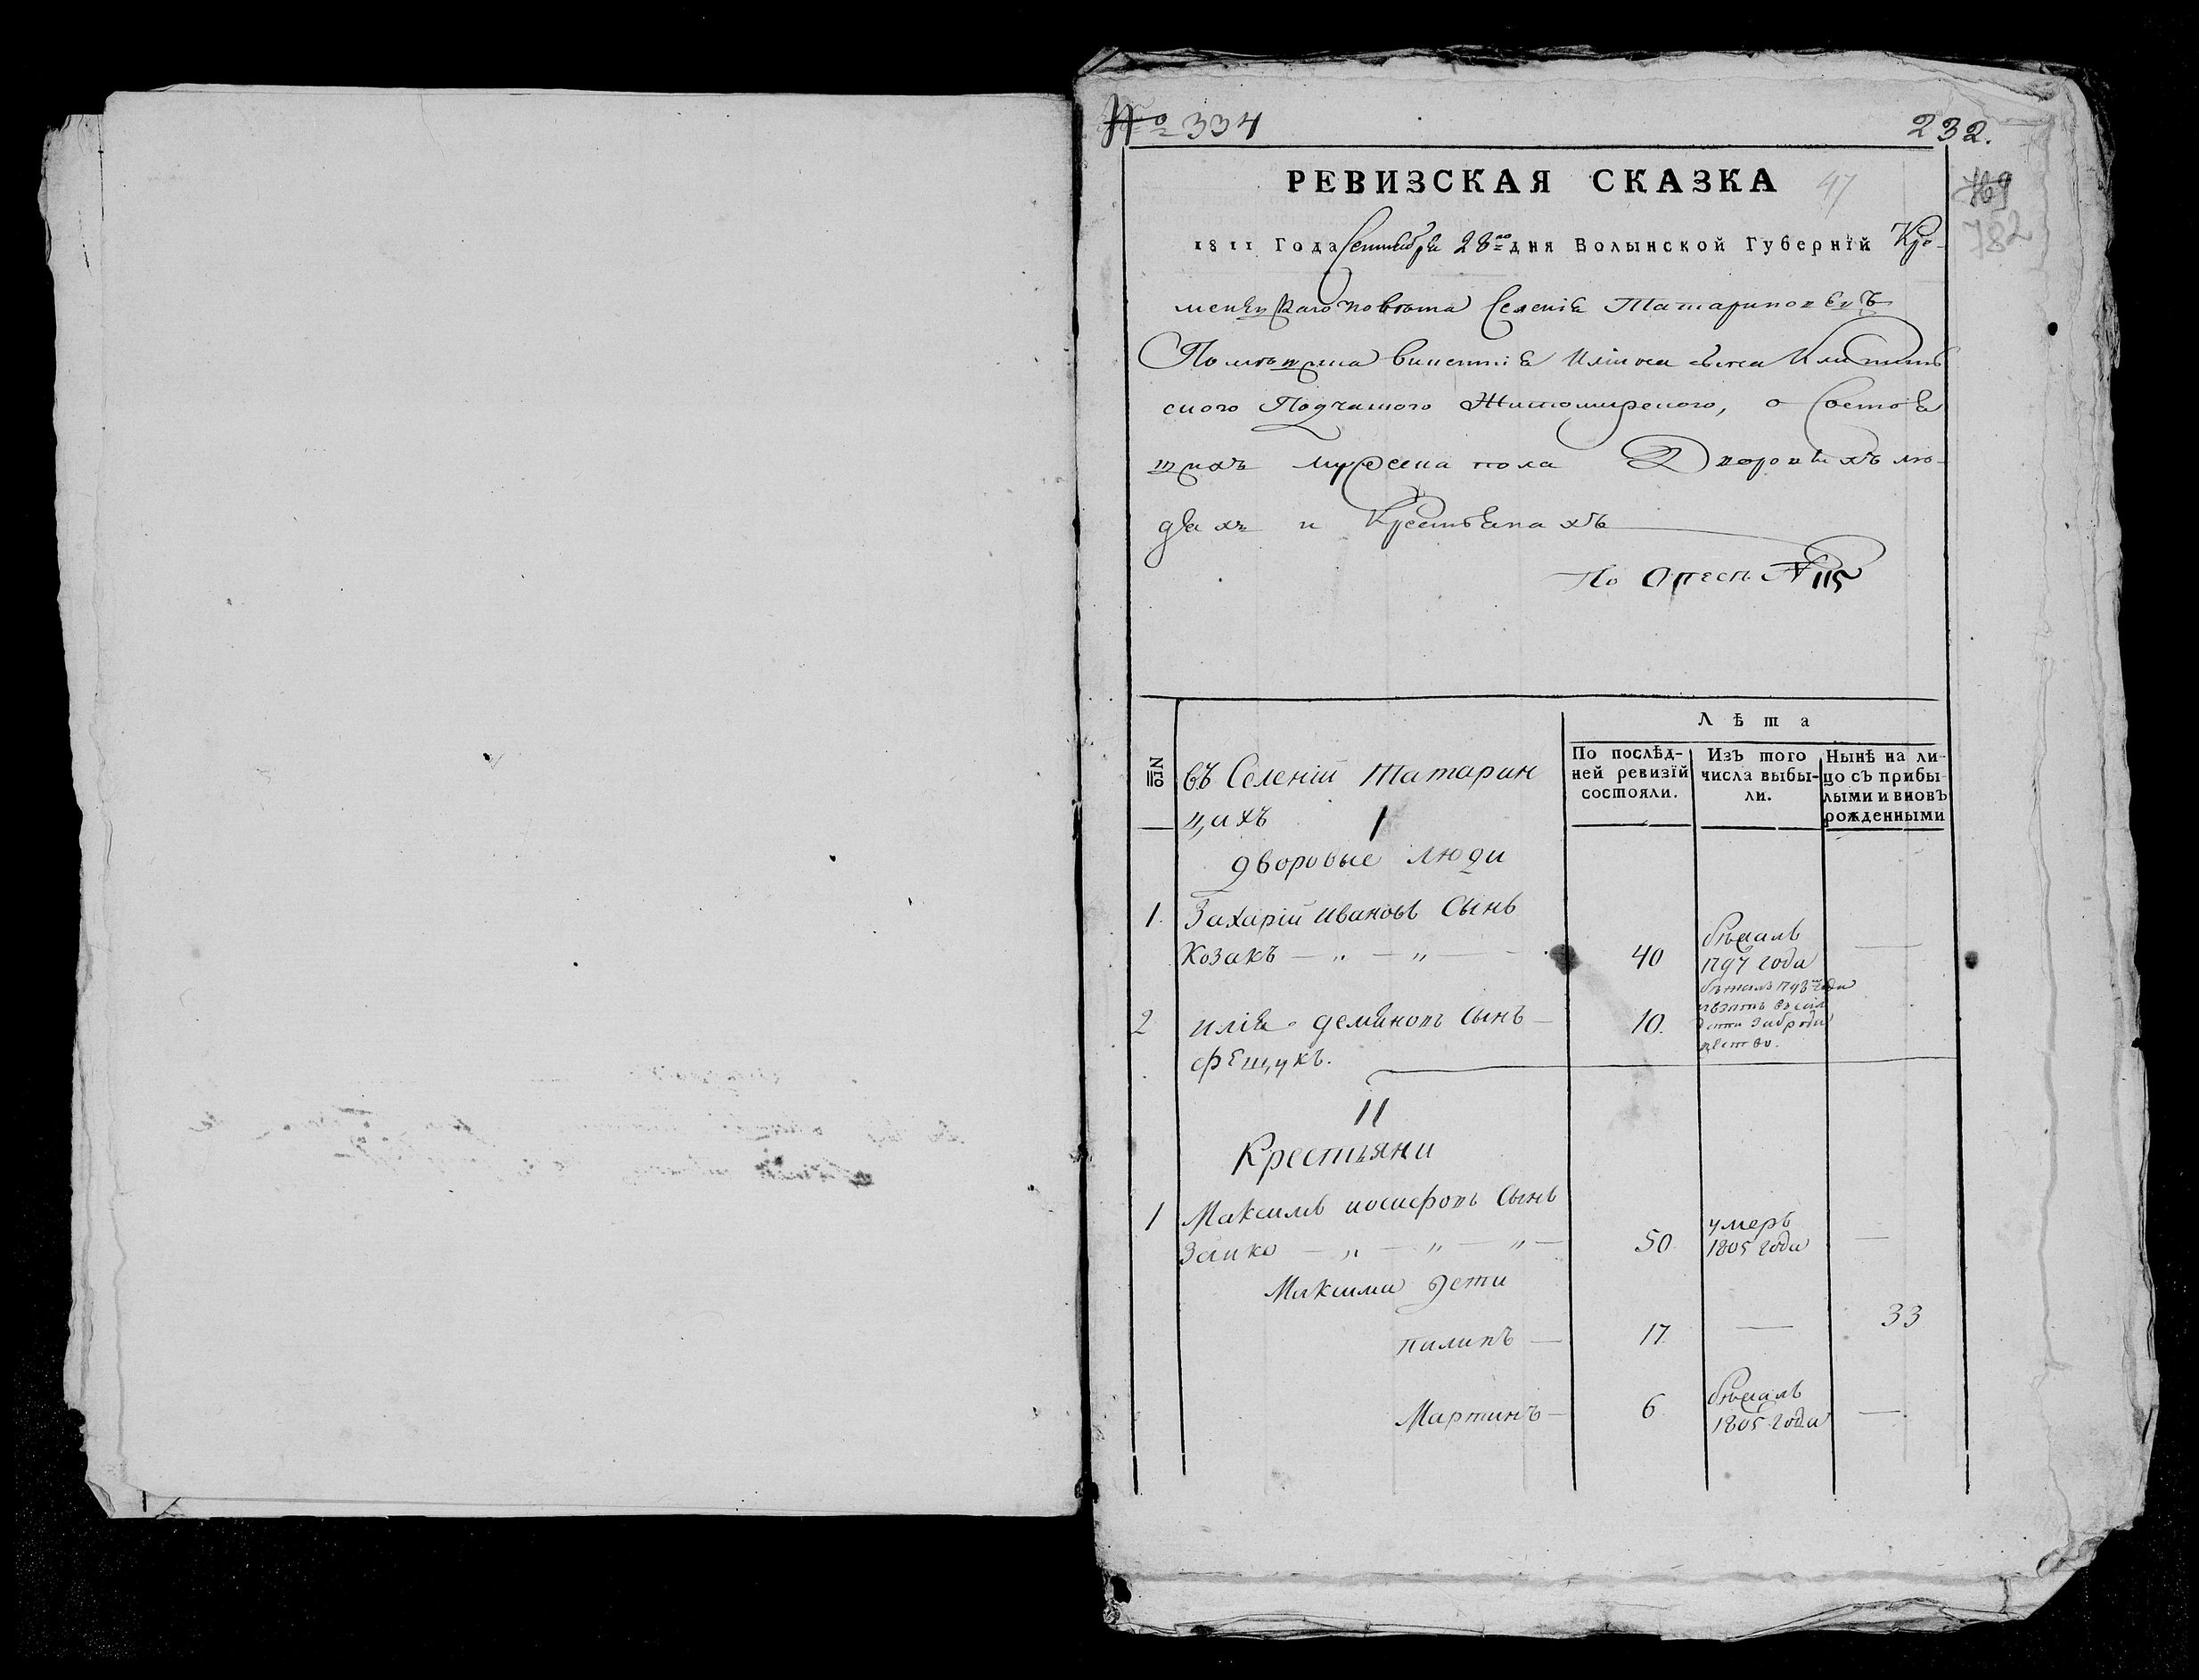 № 334
232.
РЕВИЗСКАЯ СКАЗКА 47
769
782
1811 Года Сентября 28го дня Волынской Губерніи Кре-
менецкаго повѣта Селенія Татариновецъ
Помѣщика винентія сына
ского Подчашого Житомирского, о Состоя
щихъ мужеска пола Дворовыхъ лю-
дяхъ и Крестьянахъ
По описи № 115
№
въ Селеніи Татарин
цахъ
Лѣта
По послѣд-
ней ревизіи
состояли.
Изъ того
числа выбы-
ли.
Нынѣ на ли-
цо съ прибы
лыми и вновь
рожденными
I
дворовые люди
1. Захарій ивановъ Сынъ
Козакъ — „ — „ — 40 бѣжалъ 1797 года —
2 илія деміновъ Сынъ — 10. бѣжалъ года
фещукъ.
II
Крестьяни
1 Максимъ иосифовъ Сынъ
Заико — „ — „ — „ — 50 умеръ 1805 года —
Максима дети
пилипъ — 17. — 33
Мартинъ — 6 бѣжалъ 1805 года —